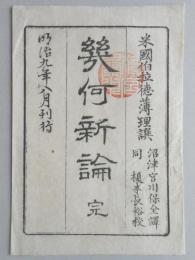 米國伯拉德薄理譔
沼津 宮川保全譯
同 榎本長裕校
幾何新論 完
明治九年八月刊行